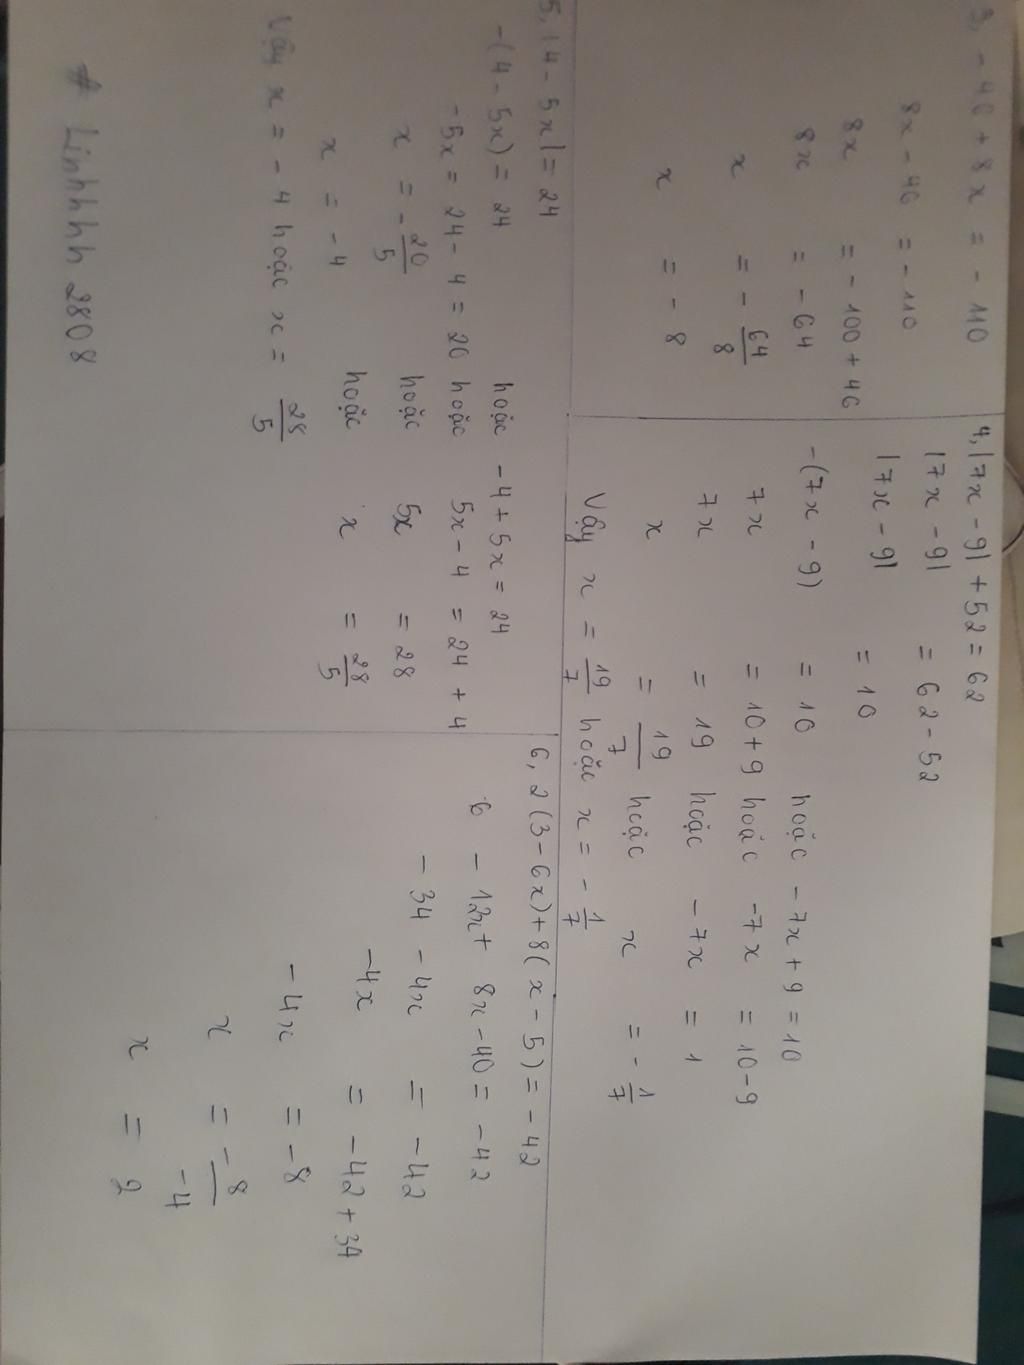 3, - 46 + 8x = - 110
8x - 46 = - 110
8x = - 100 + 46
8x = - 64
x = - 64/8
x = - 8
4, |7x - 9| + 52 = 62
|7x - 9| = 62 - 52
|7x - 9| = 10
-(7x - 9) = 10 hoặc - 7x + 9 = 10
7x = 10 + 9 hoặc -7x = 10 - 9
7x = 19 hoặc - 7x = 1
x = 19/7 hoặc x = - 1/7
Vậy x = 19/7 hoặc x = - 1/7
5, |4 - 5x| = 24
-(4 - 5x) = 24 hoặc - 4 + 5x = 24
- 5x = 24 - 4 = 20 hoặc 5x - 4 = 24 + 4
x = - 20/5 hoặc 5x = 28
x = - 4 hoặc x = 28/5
Vậy x = - 4 hoặc x = 28/5
# Linhhhh 2808
6, 2(3 - 6x) + 8(x - 5) = - 42
6 - 12x + 8x - 40 = - 42
- 34 - 4x = - 42
-4x = - 42 + 34
- 4x = - 8
x = - 8/-4
x = 2